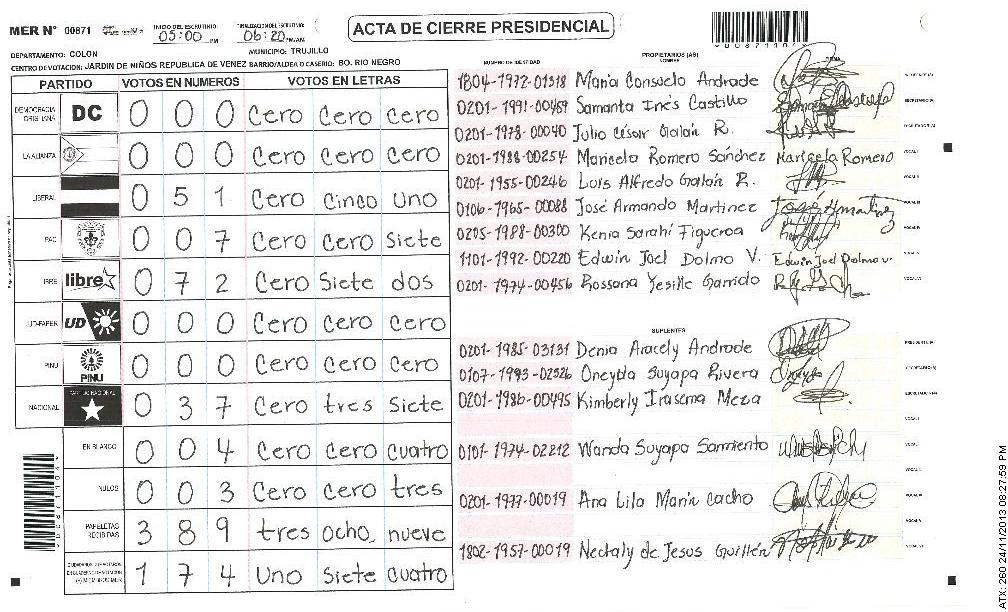 MER N° 00871 INICIO DEL ESCRUTINIO: 05:00 PM FINALIZACION DEL ESCRUTINIO: 06:20 PM/AM ACTA DE CIERRE PRESIDENCIAL
DEPARTAMENTO: COLON MUNICIPIO: TRUJILLO
CENTRO DE VOTACION: JARDIN DE NIÑOS REPUBLICA DE VENEZ BARRIO/ALDEA O CASERIO: BO. RIO NEGRO
PARTIDO VOTOS EN NUMEROS VOTOS EN LETRAS
DEMOCRACIA CRISTIANA DC 0 0 0 Cero Cero Cero
LA ALIANZA 0 0 0 Cero Cero Cero
LIBERAL 0 5 1 Cero Cinco Uno
PAC 0 0 7 Cero Cero Siete
LIBRE libre 0 7 2 Cero Siete dos
UD-FAPER UD 0 0 0 Cero Cero Cero
PINU PINU 0 0 0 Cero Cero Cero
NACIONAL PARTIDO NACIONAL 0 3 7 Cero tres Siete
EN BLANCO 0 0 4 Cero Cero Cuatro
NULOS 0 0 3 Cero Cero tres
PAPELETAS RECIBIDAS 3 8 9 tres ocho nueve
1 7 4 Uno Siete cuatro
NUMERO DE IDENTIDAD PROPIETARIOS (AS) NOMBRE FIRMA
1804-1972-01318 Maria Consuelo Andrade
0201-1991-00469 Samanta Inés Castillo
0201-1978-00040 Julio César Galán R.
0201-1988-00254 Maricela Romero Sánchez Maricela Romero
0201-1955-00246 Luis Alfredo Galán R.
0106-1965-00088 José Armando Martinez
0205-1988-00300 Kenia Sarahí Figueroa
1101-1992-00220 Edwin Joel Dolmo V. Edwin Joel Dolmo v.
0201-1974-00456 Rossana Yesille Garrido
SUPLENTES
0201-1985-03131 Denia Aracely Andrade
0107-1993-02526 Oneyda Suyapa Rivera
0201-1986-00495 Kimberly Irasema Meza
0101-1974-02212 Wanda Suyapa Sarmiento
0201-1977-00019 Ana Lila Maria Cacho
1802-1957-00019 Nectaly de Jesus Guillén
ATX: 260 24/11/2013 08:27:59 PM